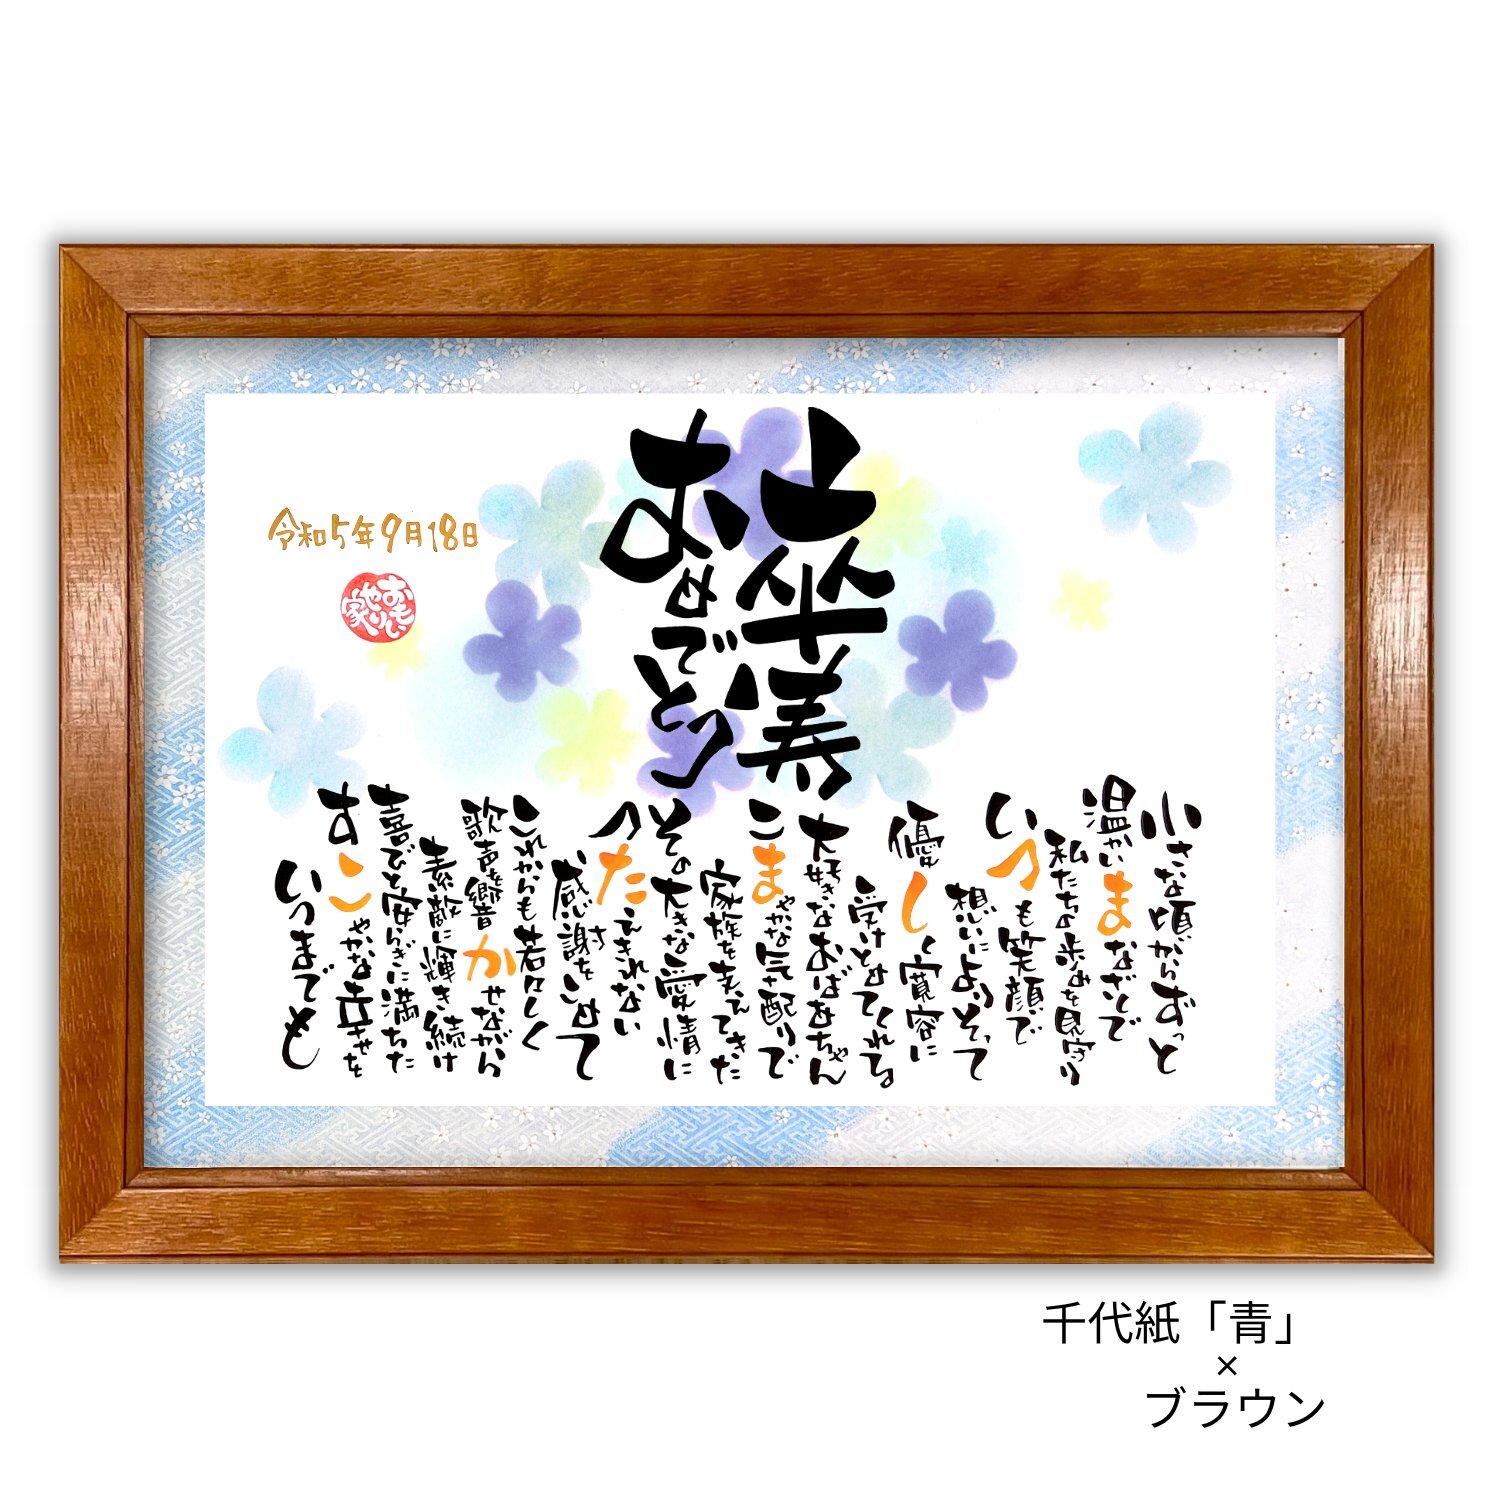 卒寿
おめでとう
令和5年9月18日
おもいやり家
小さな頃からずっと
温かいまなざしで
私たちの歩みを見守り
いつも笑顔で
想いによりそって
優しく寛容に
受けとめてくれる
大好きなおばあちゃん
こまやかな気配りで
家族を支えてきた
その大きな愛情に
つたえきれない
感謝をこめて
これからも若々しく
歌声を響かせながら
素敵に輝き続け
喜びと安らぎに満ちた
すこやかな幸せを
いつまでも
千代紙「青」
×
ブラウン